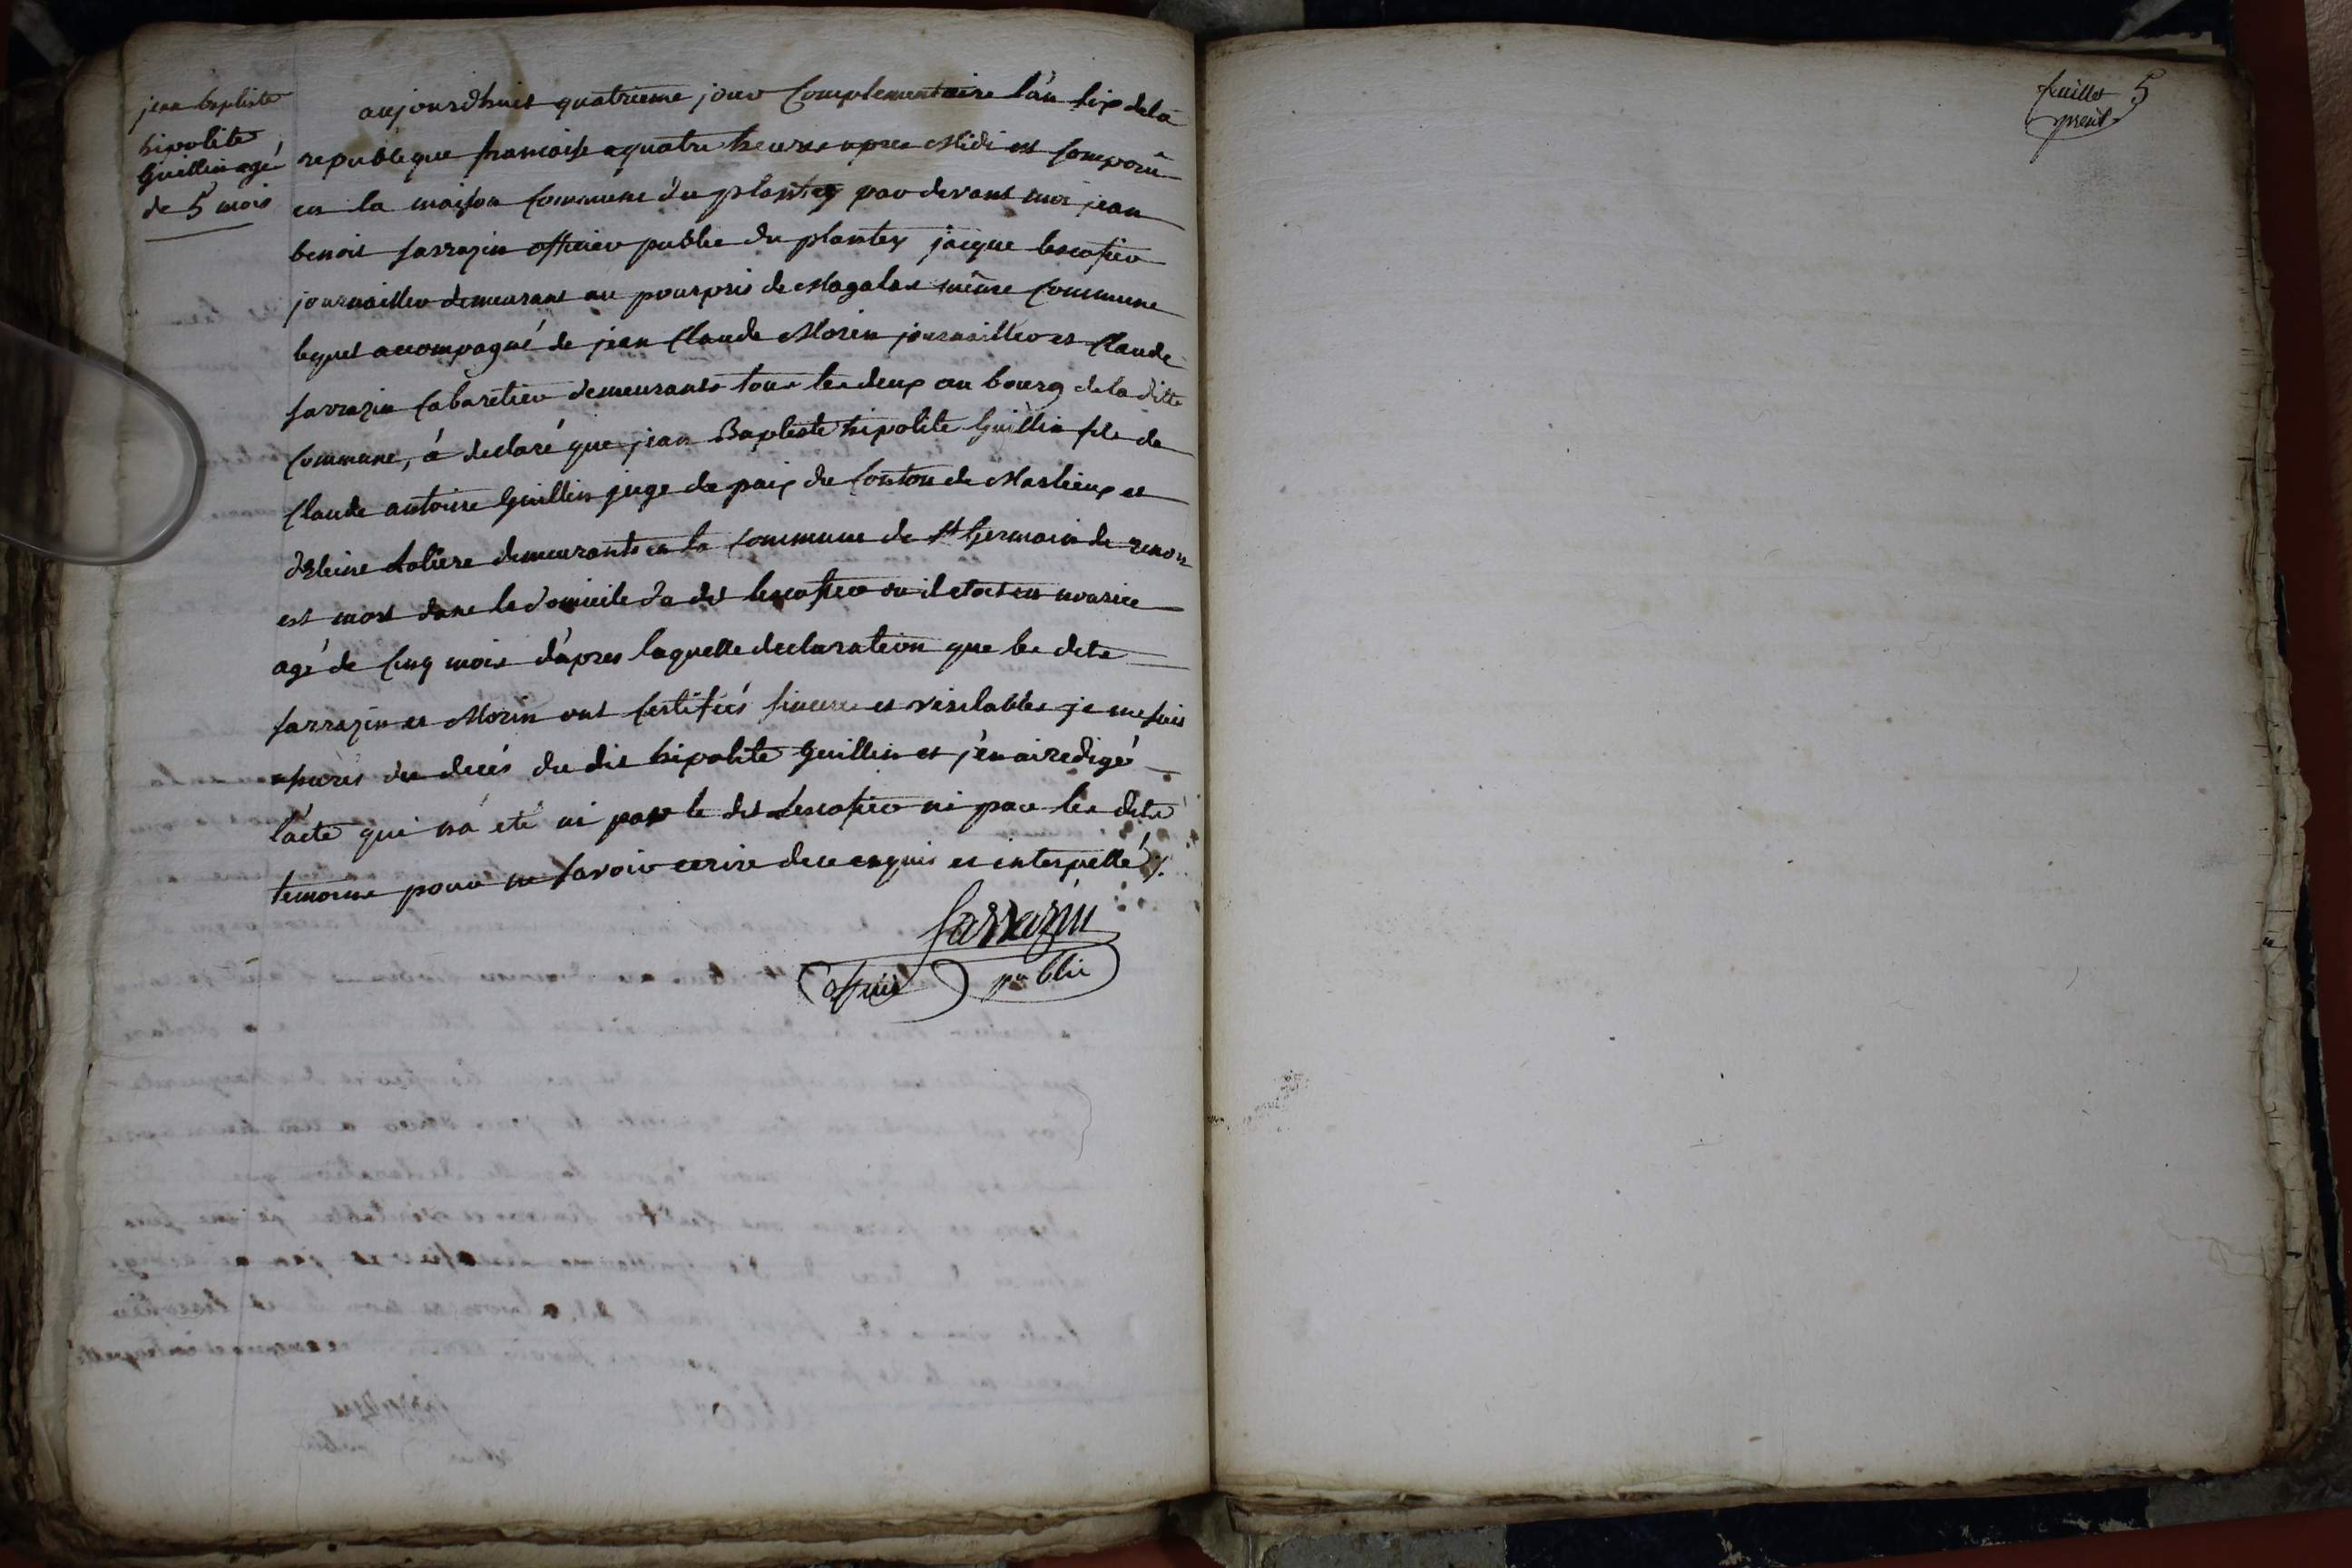 jean baptiste
hipolite
Guillin agé
de 5 mois
aujourdhuit quatrieme jour Complementaire l'an six dela
republique francaise a quatre heures apres Midi est Comparû
en la maison Commune du plantey par devant moi jean
benoit sarrazin officier public du plantey jacque lescofier
journaillier demeurant au pourpris de Magalas même Commune
lequel accompagné de jean Claude Morin journaillier et Claude
sarrazin Cabaretier demeurants tous les deux au bourg de la ditte
Commune, á declaré que jean Baptiste hipolite Guillin fils de
Claude antoine Guillin juge de paix du Conton de Marlieux et
demeurants en la commune de St Germain de renon
est mort dans le domicile du dit lescofier ou il etoit en nourice
agé de Cinq mois d'apres laquelle declaration que les dits
sarrazin et Morin ont Certifiés sincere et veritables je me suis
assurés du decés du dit hipolite Guillin et j'en ai redigé
l'acte qui n'a eté ni par le dit Lescofier ni par les dits
temoins pour ne savoir ecrire de ce enquis et interpellé
sarrazin
officier public
feuillet 5